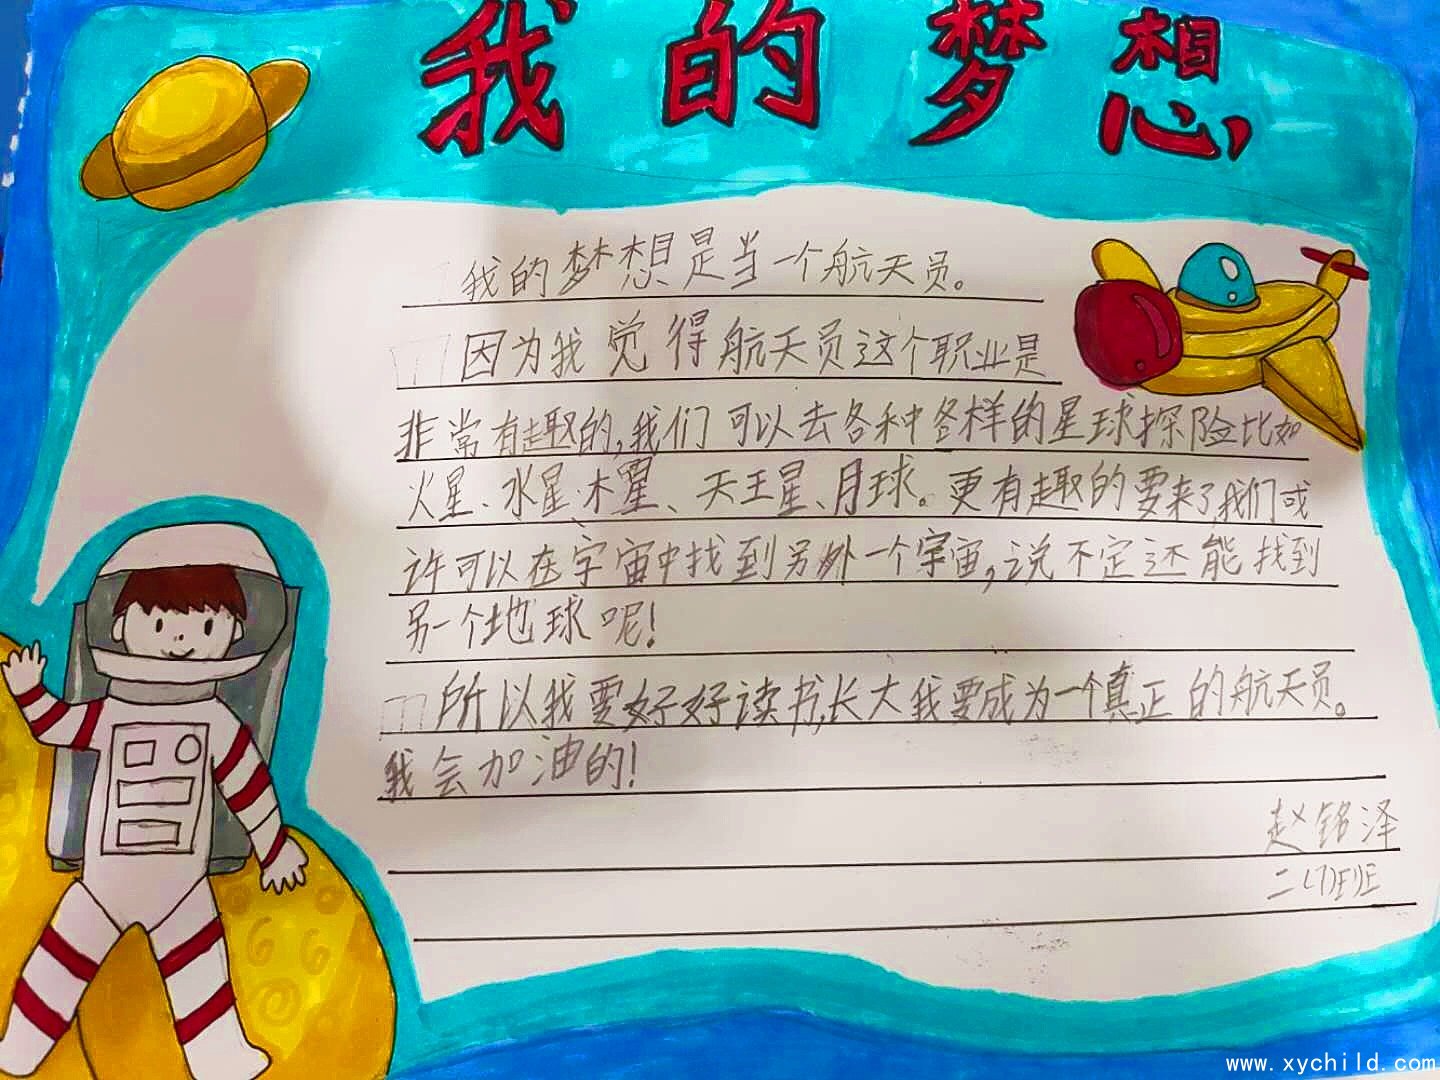 我的梦想
我的梦想是当一个航天员。
因为我觉得航天员这个职业是
非常有趣的,我们可以去各种各样的星球探险比如
火星、水星、木星、天王星、月球。更有趣的要来了,我们或
许可以在宇宙中找到另外一个宇宙,说不定还能找到
另一个地球呢!
所以我要好好读书,长大我要成为一个真正的航天员。
我会加油的!
赵铭泽
二(7)班
www.xychild.com